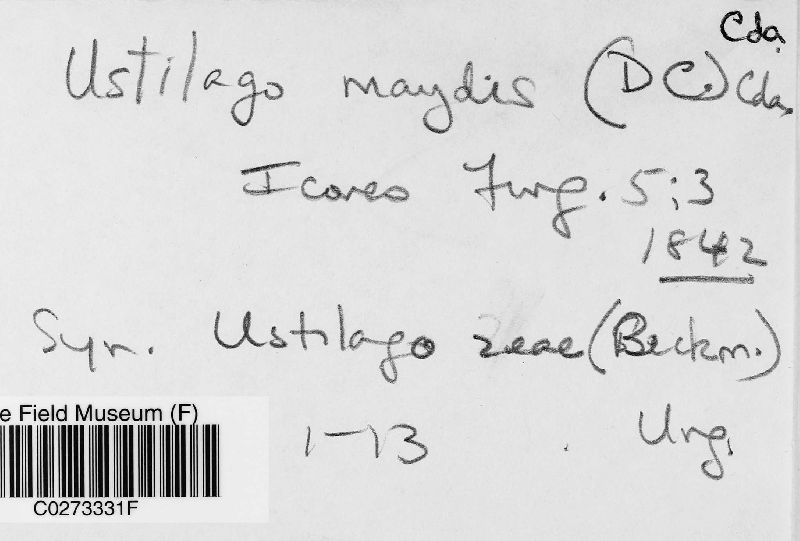 Cda.
Ustilago maydis (DC.) Cda.
Icones Fung. 5:3
1842
Syn. Ustilago zeae (Beckm.)
Ung.
1-13
e Field Museum (F)
C0273331F